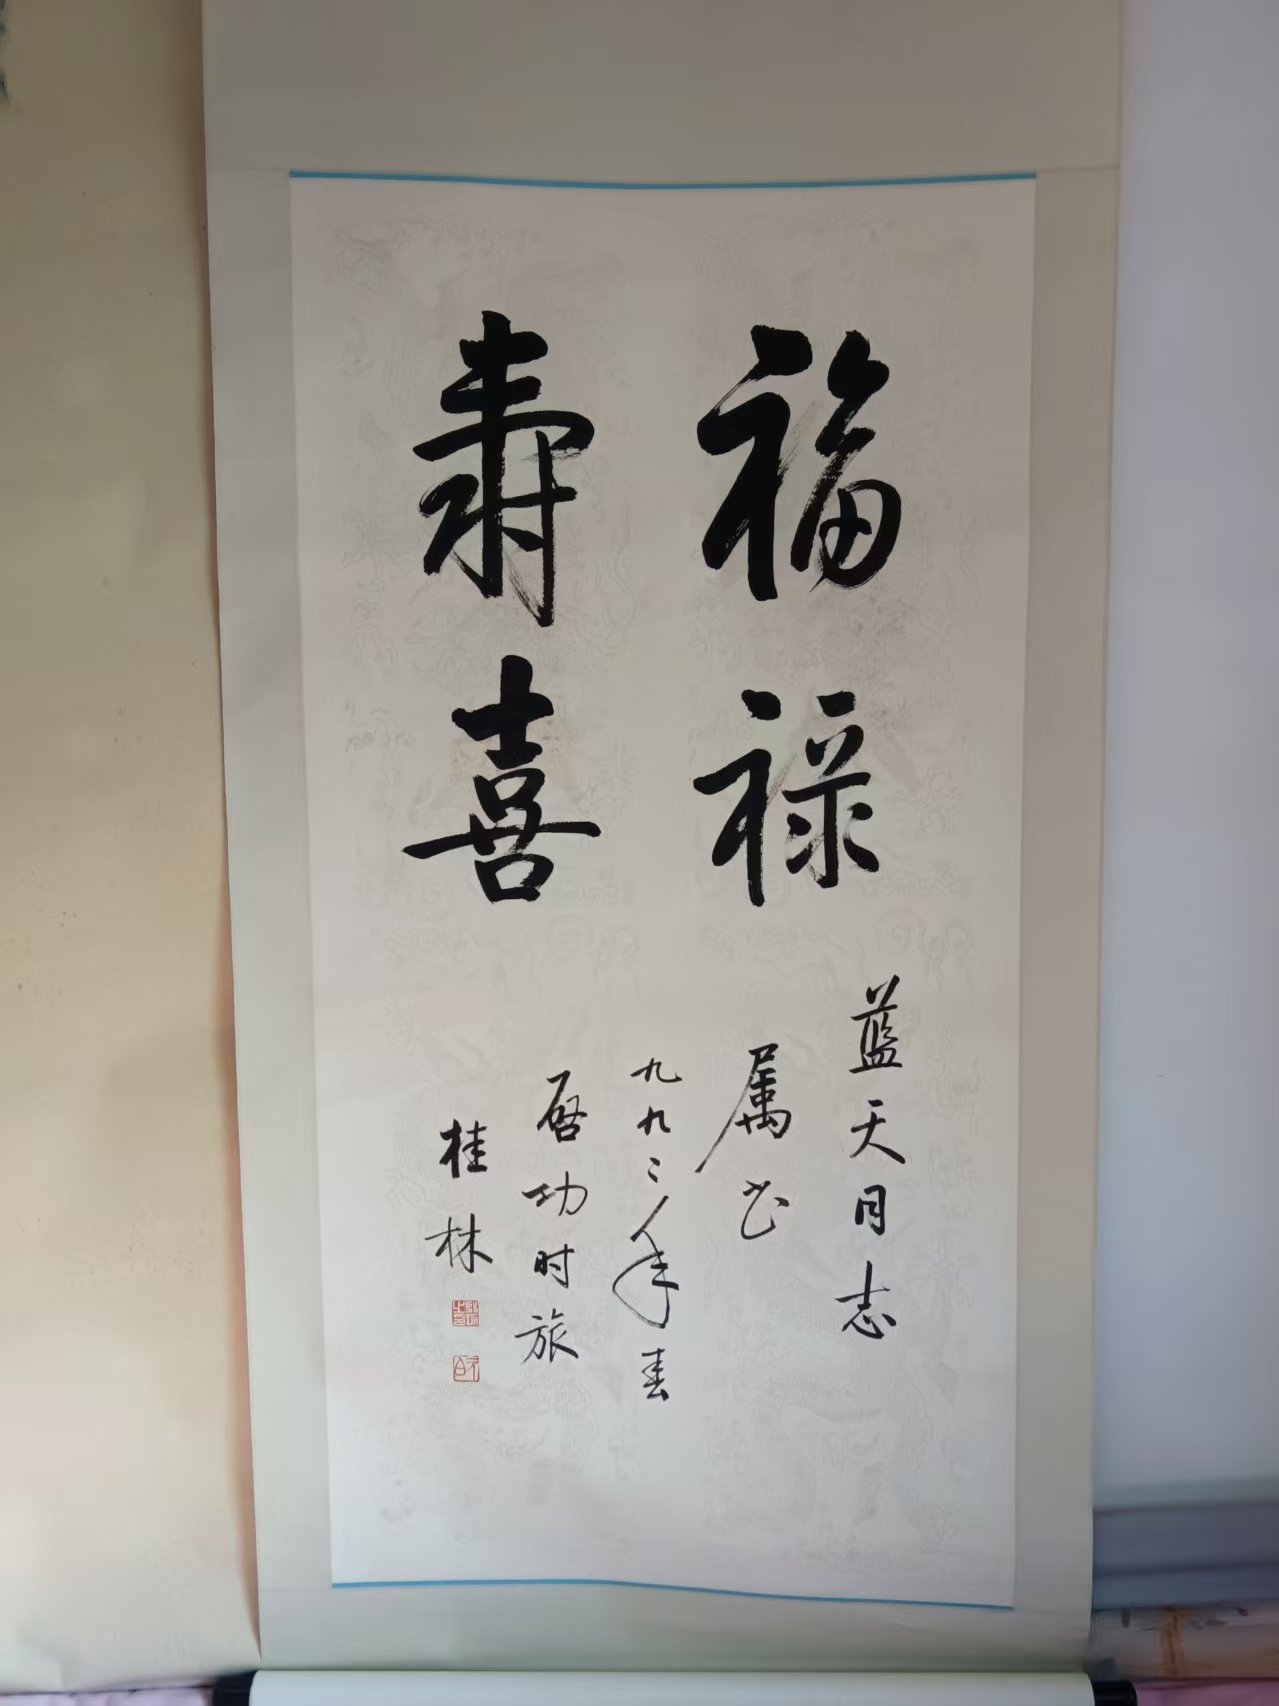 福禄
寿喜
蓝天同志
属书
九九二年春
启功时旅
桂林